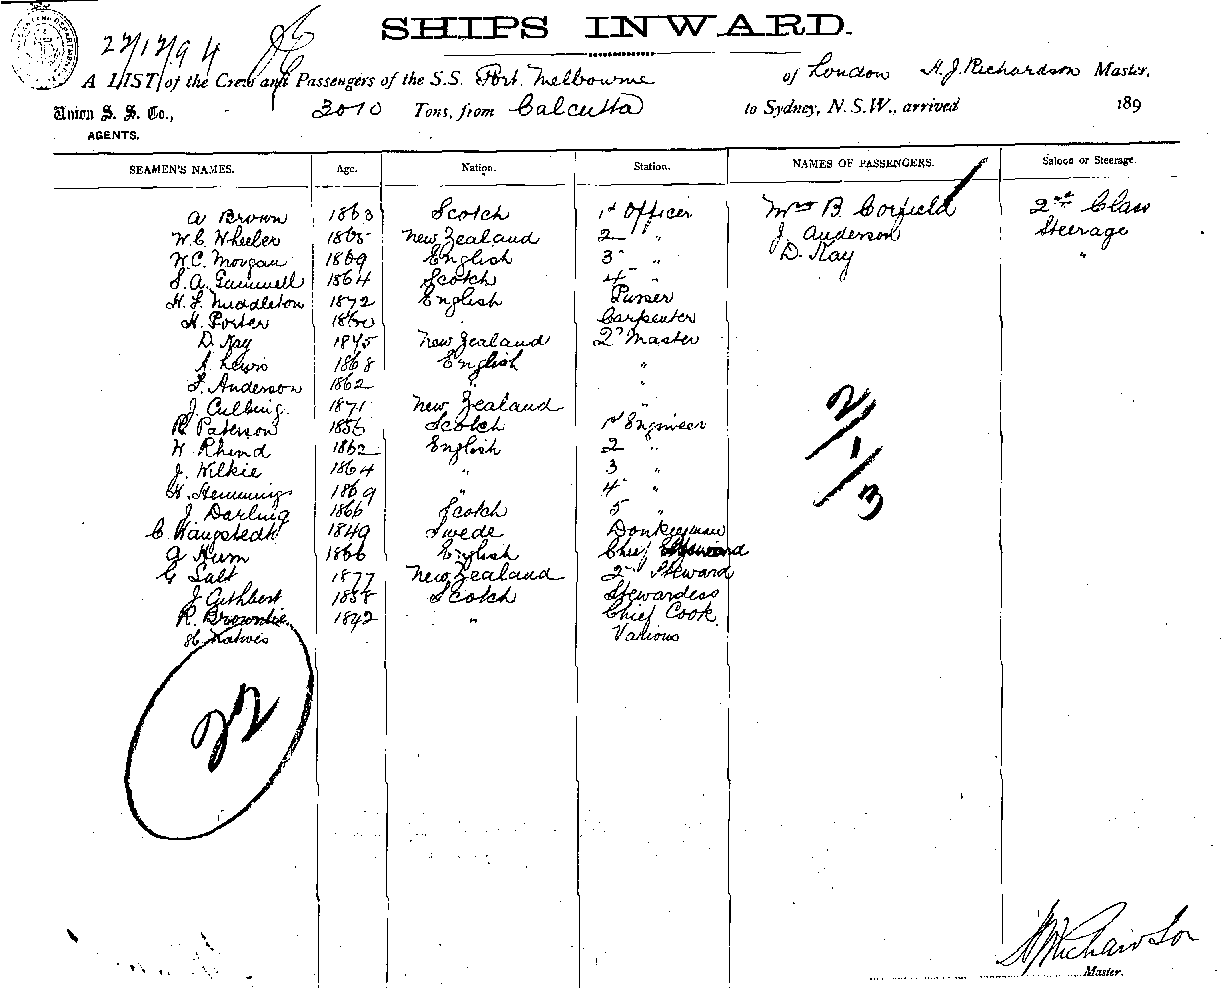 SHIPS INWARD.
27/12/94
A LIST of the Crew and Passengers of the S.S. Port Melbourne of London H. J. Richardson Master,
Union S. S. Co., 3070 Tons, from Calcutta to Sydney, N. S. W., arrived 189
AGENTS.
SEAMEN'S NAMES. Age. Nation. Station. NAMES OF PASSENGERS. Saloon or Steerage.
A Brown 1863 Scotch 1st Officer Mrs B. Corfield 2nd Class
W. C. Wheeler 1865 New Zealand 2 " J. Anderson Steerage
W. C. Morgan 1869 English 3 " D. Kay "
S. A. Gammell 1864 Scotch 4 "
H. F. Middleton 1872 English Purser
H. Porter 1860 Carpenter
D. Kay 1845 New Zealand 2nd Master
A. Lewis 1868 English "
F. Anderson 1862 " "
J. Culling 1871 New Zealand "
R. Paterson 1856 Scotch 1st Engineer
W. Rhind 1862 English 2 "
J. Wilkie 1864 " 3 "
H. Hemmings 1869 " 4 "
J. Darling 1866 Scotch 5 "
C. 1849 Swede Donkeyman
A Hum 1866 English Chief Steward
G Salt 1877 New Zealand 2nd Steward
J. Cuthbert 1858 Scotch Stewardess
R. Brownlie 1842 " Chief Cook
Natives Various
2/1/3
22
Richardson
Master.